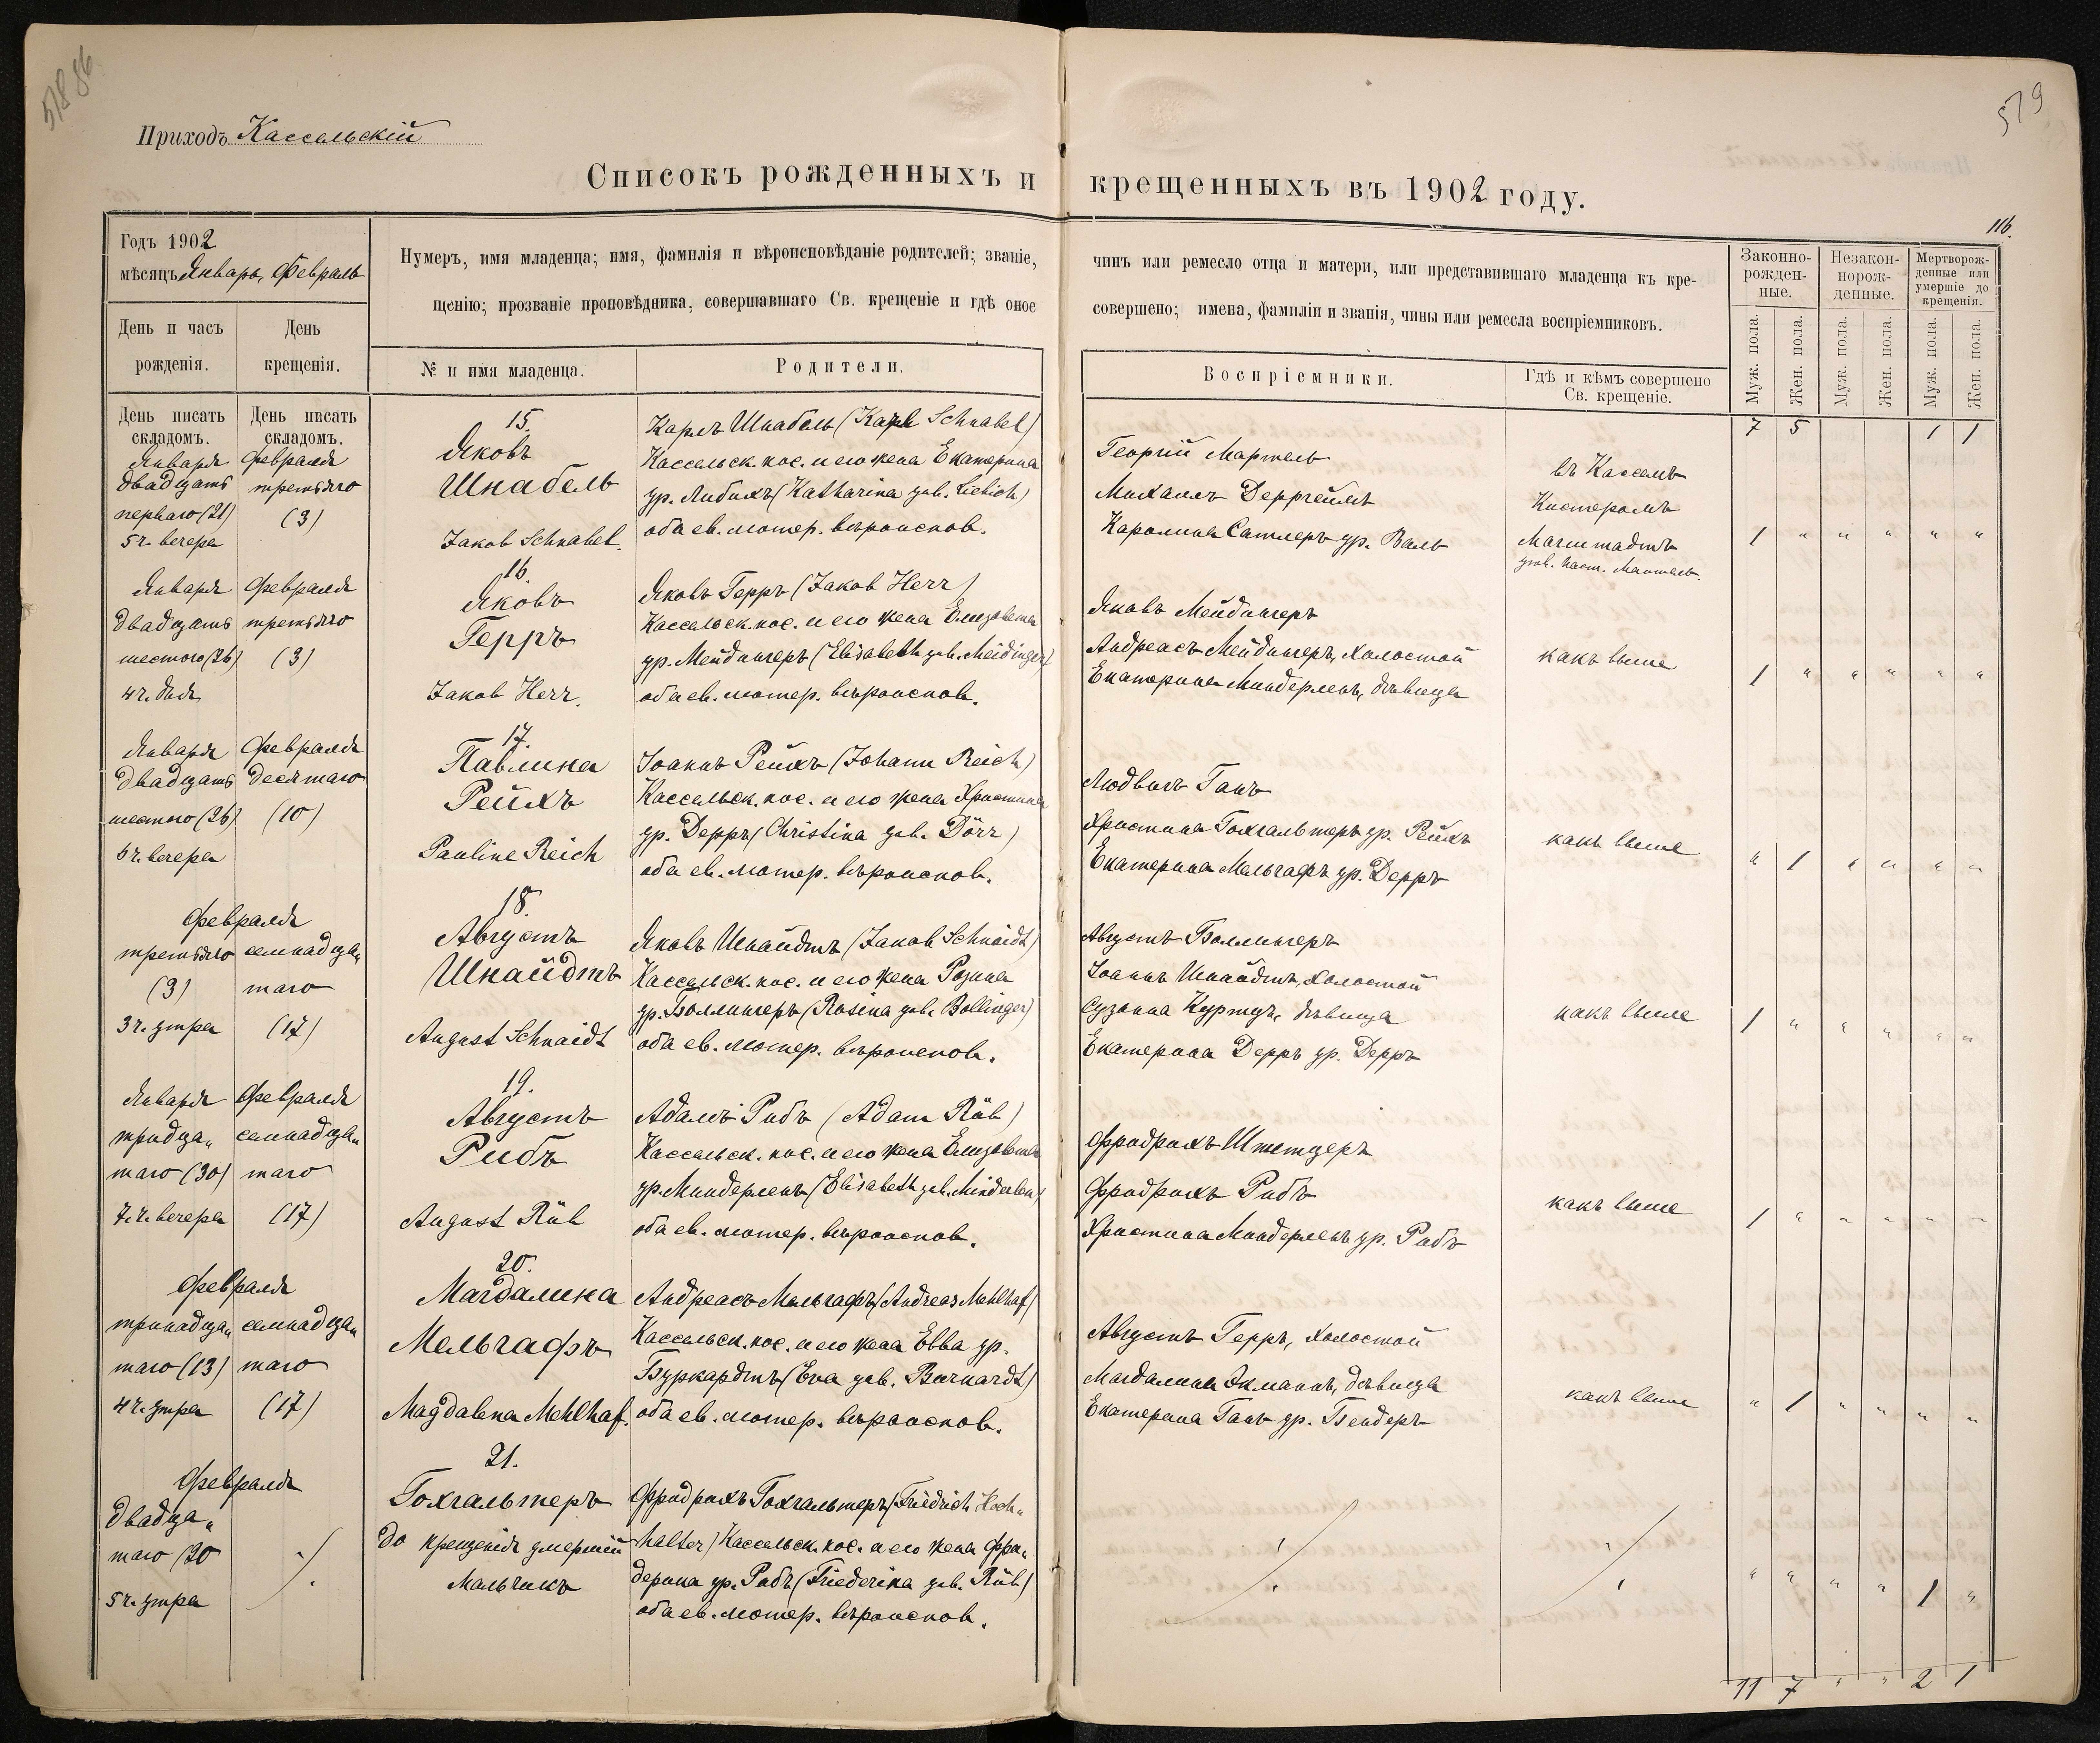 579
Приходъ Кассельскій
Списокъ рожденныхъ и крещенныхъ въ 1902 году.
116.
Годъ 1902
мѣсяцъ Январь, Февраль
Нумеръ, имя младенца; имя, фамилія и вѣроисповѣданіе родителей; званіе,
щенію; прозваніе проповѣдника, совершавшаго Св. крещеніе и гдѣ оное
чинъ или ремесло отца и матери, или представившаго младенца къ кре-
совершено; имена, фамиліи и званія, чины или ремесла воспріемниковъ.
Законно-
рожден-
ные.
Незакон-
норож-
денные.
Мертворож-
денные или
умершіе до
крещенія.
День и часъ
рожденія.
День
крещенія.
№ и имя младенца.
Родители.
Воспріемники.
Гдѣ и кѣмъ совершено
Св. крещеніе.
Муж. пола.
Жен. пола.
Муж. пола.
Жен. пола.
Муж. пола.
Жен. пола.
День писать
складомъ.
День писать
складомъ.
7 5 1 1
Января
двадцать
перваго (21)
5 ч. вечера
Февраля
третьяго
(3)
15.
Яковъ
Шнабель
Jakob Schnabel.
Карлъ Шнабель (Karl Schnabel)
Кассельск. пос. и его жена Екатерина
ур. Либихъ (Katharina geb. Liebich)
оба ев. лютер. вѣроиспов.
Георгій Мартель
Михаилъ Дерргеймъ
Каролина Сатлеръ ур. Валь
въ Касселъ
Кистеромъ
Магштадтъ
утв. паст.
1 " " " " "
Января
двадцать
шестого (26)
4 ч. дня
Февраля
третьяго
(3)
16.
Яковъ
Герръ
Jakob Herr.
Яковъ Герръ (Jakob Herr)
Кассельск. пос. и его жена Елизавета
ур. Мейдингеръ (Elisabeth geb. Meidinger)
оба ев. лютер. вѣроиспов.
Яковъ Мейдингеръ
Андреасъ Мейдингеръ, холостой
Екатерина Миндерленъ, дѣвица
какъ выше
1 " " " " "
Января
двадцать
шестого (26)
6 ч. вечера
Февраля
десятаго
(10)
17.
Павлина
Рейхъ
Pauline Reich
Іоаннъ Рейхъ (Johann Reich)
Кассельск. пос. и его жена Христина
ур. Дерръ (Christina geb. Dörr)
оба ев. лютер. вѣроиспов.
Людвигъ Ганъ
Христина Гохгальтеръ ур. Рейхъ
Екатерина Мельгафъ ур. Дерръ
какъ выше
" 1 " " " "
Февраля
третьяго
(3)
3 ч. утра
семнадца„
таго
(17)
18.
Августъ
Шнайдтъ
August Schnaidt
Яковъ Шнайдтъ (Jakob Schnaidt)
Кассельск. пос. и его жена Розина
ур. Боллингеръ (Rosina geb. Bollinger)
оба ев. лютер. вѣроиспов.
Августъ Боллингеръ
Іоаннъ Шнайдтъ, холостой
Сузанна Курцъ, дѣвица
Екатерина Дерръ ур. Дерръ
какъ выше
1 " " " " "
Января
тридца„
таго (30)
7 ч. вечера
Февраля
семнадца„
таго
(17)
19.
Августъ
Рибъ
August Rüb
Адамъ Рибъ (Adam Rüb)
Кассельск. пос. и его жена Елизавета
ур. Миндерленъ (Elisabeth geb. Minderlen)
оба ев. лютер. вѣроиспов.
Фридрихъ Штетцеръ
Фридрихъ Рибъ
Христина Миндерленъ ур. Рибъ
какъ выше
1 " " " " "
Февраля
тринадца„
таго (13)
4 ч. утра
семнадца„
таго
(17)
20.
Магдалина
Мельгафъ
Magdalena Mehlhaf.
Андреасъ Мельгафъ (Andreas Mehlhaf)
Кассельск. пос. и его жена Евва ур.
Буркардтъ (Eva geb. Burkardt)
оба ев. лютер. вѣроиспов.
Августъ Герръ, холостой
Магдалина Экманъ, дѣвица
Екатерина Ганъ ур. Бендеръ
какъ выше
" 1 " " " "
Февраля
двадца„
таго (20
5 ч. утра
21.
Гохгальтеръ
до крещенія умершій
мальчикъ
Фридрихъ Гохгальтеръ (Friedrich Hoch„
halter) Кассельск. пос. и его жена Фри„
дерика ур. Рибъ (Friederika geb. Rüb)
оба ев. лютер. вѣроиспов.
" " " " 1 "
11 7 " " 2 1